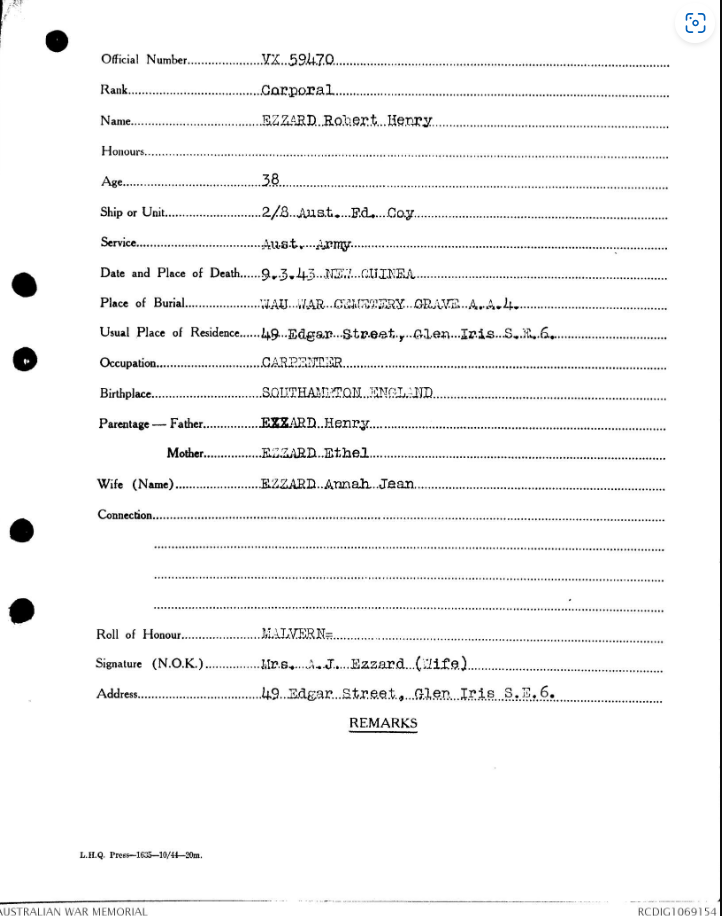 Official Number VX 59470
Rank Corporal
Name EZZARD Robert Henry
Honours
Age 38
Ship or Unit 2/8 Aust. Fd. Coy
Service Aust. Army
Date and Place of Death 9.3.43 NEW GUINEA
Place of Burial WAU WAR CEMETERY GRAVE A.A.4.
Usual Place of Residence 49 Edgar Street, Glen Iris S.E.6.
Occupation CARPENTER
Birthplace SOUTHAMPTON ENGLAND
Parentage — Father EZZARD Henry
Mother EZZARD Ethel
Wife (Name) EZZARD Annah Jean
Connection
Roll of Honour MALVERN=
Signature (N.O.K.) Mrs. A.J. Ezzard (Wife)
Address 49 Edgar Street, Glen Iris S.E.6.
REMARKS
L.H.Q. Press—1635—10/44—20m.
AUSTRALIAN WAR MEMORIAL
RCDIG1069154